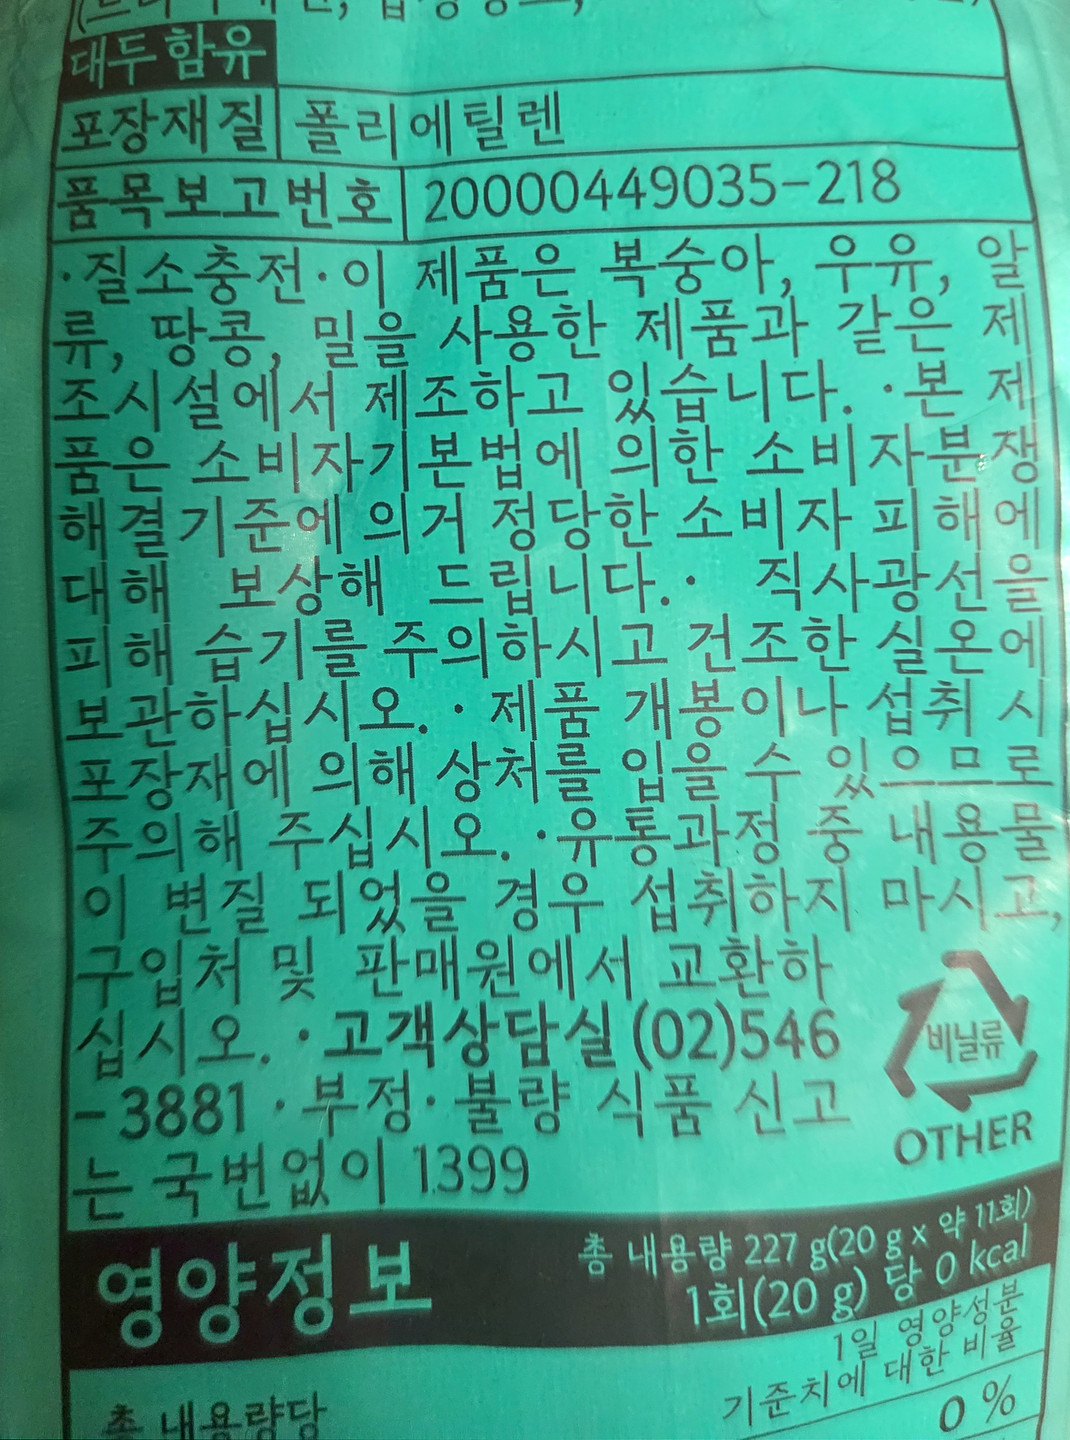 대두함유
포장재질 폴리에틸렌
품목보고번호 20000449035-218
·질소충전·이 제품은 복숭아, 우유, 알
류, 땅콩, 밀을 사용한 제품과 같은 제
조시설에서 제조하고 있습니다. ·본 제
품은 소비자기본법에 의한 소비자분쟁
해결기준에 의거 정당한 소비자 피해에
대해 보상해 드립니다.· 직사광선을
피해 습기를 주의하시고 건조한 실온에
보관하십시오. ·제품 개봉이나 섭취 시
포장재에 의해 상처를 입을 수 있으므로
주의해 주십시오. ·유통과정 중 내용물
이 변질 되었을 경우 섭취하지 마시고,
구입처 및 판매원에서 교환하
십시오. ·고객상담실(02)546
-3881 ·부정·불량 식품 신고
는 국번없이 1399
비닐류
OTHER
영양정보
총 내용량 227 g(20 g x 약 11회)
1회(20 g) 당 0 kcal
총 내용량당
1일 영양성분
기준치에 대한 비율
0 %